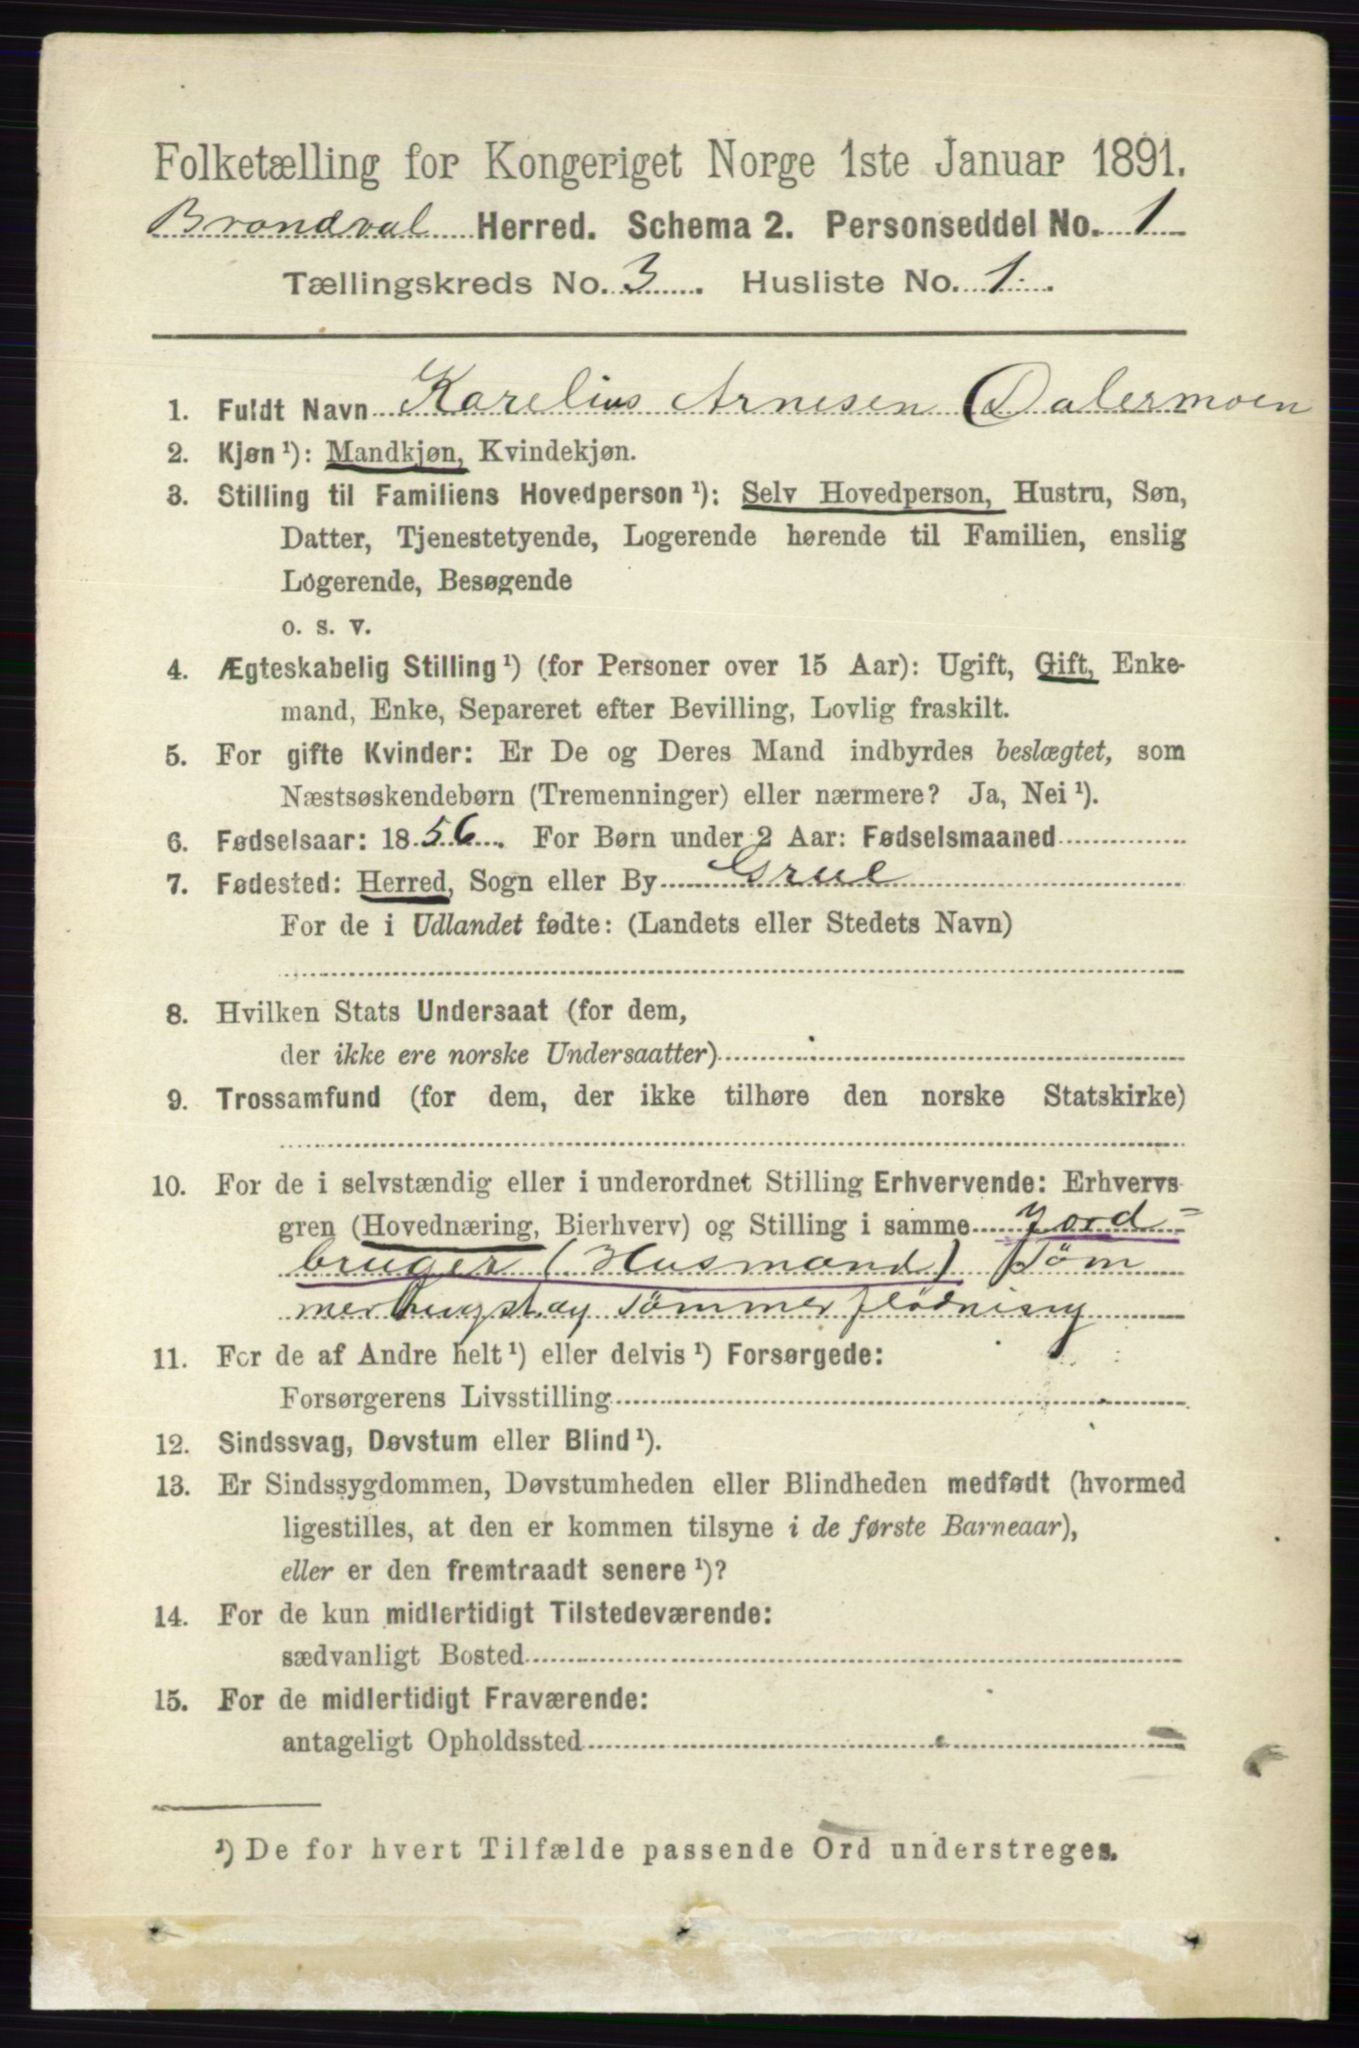 Folketælling for Kongeriget Norge 1ste Januar 1891.
Brandval Herred. Schema 2. Personseddel No. 1
Tællingskreds No. 3. Husliste No. 1.
1. Fuldt Navn Karelius Arnesen Dalermoen
2. Kjøn¹): Mandkjøn, Kvindekjøn.
3. Stilling til Familiens Hovedperson¹): Selv Hovedperson, Hustru, Søn,
Datter, Tjenestetyende, Logerende hørende til Familien, enslig
Logerende, Besøgende
o. s. v.
4. Ægteskabelig Stilling¹) (for Personer over 15 Aar): Ugift, Gift, Enke-
mand, Enke, Separeret efter Bevilling, Lovlig fraskilt.
5. For gifte Kvinder: Er De og Deres Mand indbyrdes beslægtet, som
Næstsøskendebørn (Tremenninger) eller nærmere? Ja, Nei¹).
6. Fødselsaar: 1856. For Børn under 2 Aar: Fødselsmaaned
7. Fødested: Herred, Sogn eller By Grue
For de i Udlandet fødte: (Landets eller Stedets Navn)
8. Hvilken Stats Undersaat (for dem,
der ikke ere norske Undersaatter)
9. Trossamfund (for dem, der ikke tilhøre den norske Statskirke)
10. For de i selvstændig eller i underordnet Stilling Erhvervende: Erhvervs-
gren (Hovednæring, Bierhverv) og Stilling i samme Jord=
bruger (Husmand) Töm
merhugst og Tömmerflödning
11. For de af Andre helt¹) eller delvis¹) Forsørgede:
Forsørgerens Livsstilling
12. Sindssvag, Døvstum eller Blind¹).
13. Er Sindssygdommen, Døvstumheden eller Blindheden medfødt (hvormed
ligestilles, at den er kommen tilsyne i de første Barneaar),
eller er den fremtraadt senere¹)?
14. For de kun midlertidigt Tilstedeværende:
sædvanligt Bosted
15. For de midlertidigt Fraværende:
antageligt Opholdssted
¹) De for hvert Tilfælde passende Ord understreges.